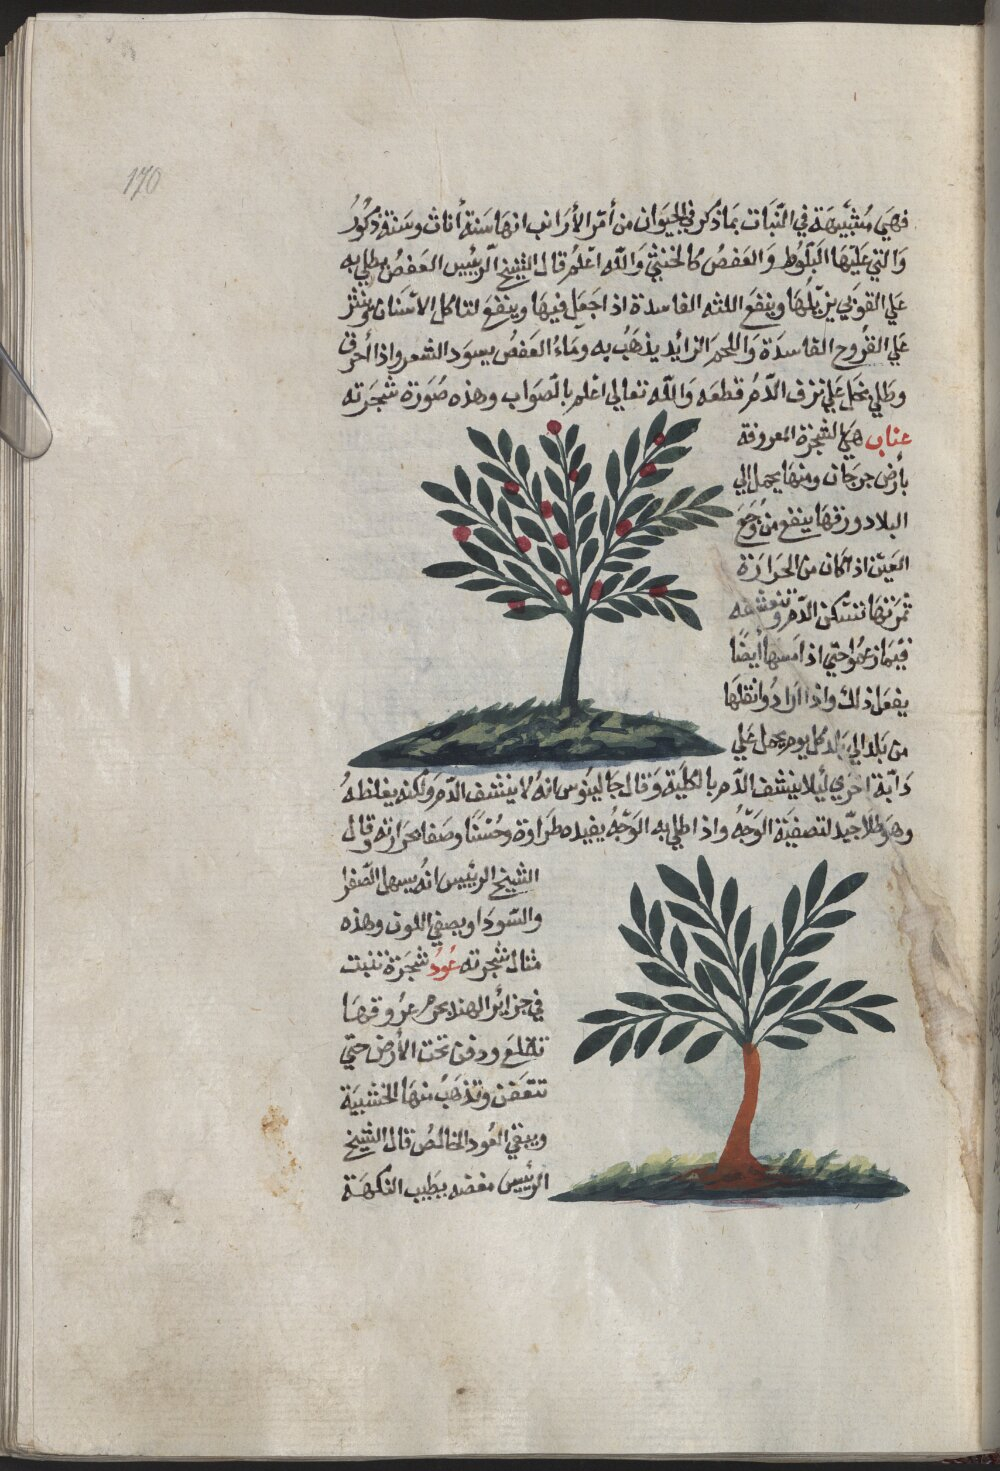 170
فهي مشبيهة في النبات بما ذكر في الحيوان من أمر الأرانب انها سنة أناث وسنة ذكور
والتي عليها البلوط والعفص كالخنثي والله اعلم قال الشيخ الرييس العفص يطلي به
علي القوبي يزيلها وينفع اللثه الفاسدة اذا جعل فيها وينفع لتاكل الاسنان وينثر
علي القروح الفاسدة واللحم الزايد يذهب به وماء العفص يسود الشعر واذا أحرق
وطلي بخل علي نزف الدم قطعه والله تعالي اعلم بالصواب وهذه صورة شجرته
عناب هي الشجرة المعروفة
بأرض جرجان ومنها يحمل الي
البلاد ورقها ينفع من وجع
العين اذا كان من الحرارة
ثمرتها تسكن الدم وتنشفه
فيما زعموا حتي اذا مسها أيضا
يفعل ذلك واذا ارادوا نقلها
من بلد الي بلد كل يوم يحمل علي
دابة اخري ليلا ينشف الدم بالكلية وقال جالينوس انه لا ينشف الدم ولكنه يغلظه
وهو طلا جيد لتصفية الوجه واذا طلي به الوجه يفيده طراوة وحسنا وصفا حرارته وقال
الشيخ الرييس انه يسهل الصفرا
والسودا ويصفي اللون وهذه
مثال شجرته عود شجرة تنبت
في جزائر الهند بحر عروقها
تقلع ودفن تحت الأرض حتي
تتعفن وتذهب منها الخشبية
ويبقي العود الخالص قال الشيخ
الرئيس مضغه يطيب النكهة